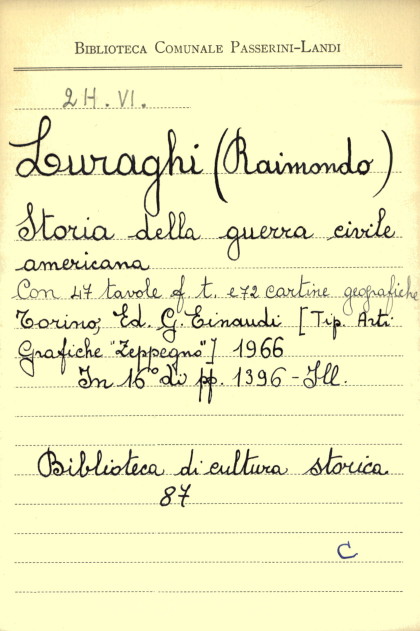 BIBLIOTECA COMUNALE PASSERINI-LANDI
2H. VI.
Luraghi (Raimondo)
Storia della guerra civile
americana
Con 47 tavole f. t. e 72 cartine geografiche
Torino, Ed. G. Einaudi [Tip. Arti
Grafiche "Zeppegno"] 1966
In 16° di pp. 1396 - Ill.
Biblioteca di cultura storica
87
C